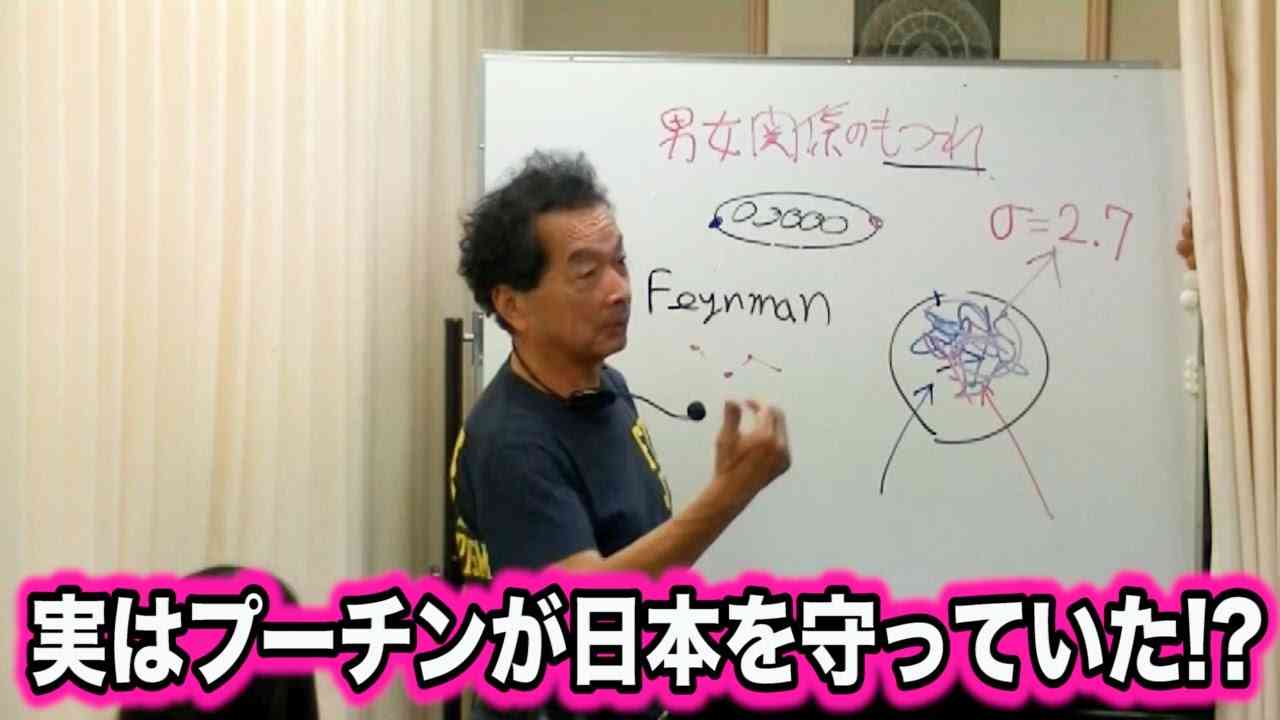 男女関係のもつれ
σ=2.7
Feynman
実はプーチンが日本を守っていた!?